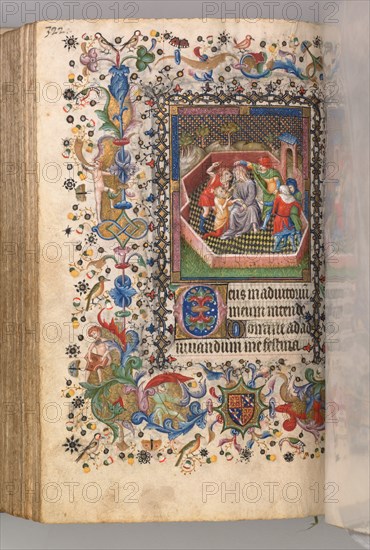 322
Deus in adiutoriu
meum intende
Domine ad ad
iuuandum me festina.
PHOTO12